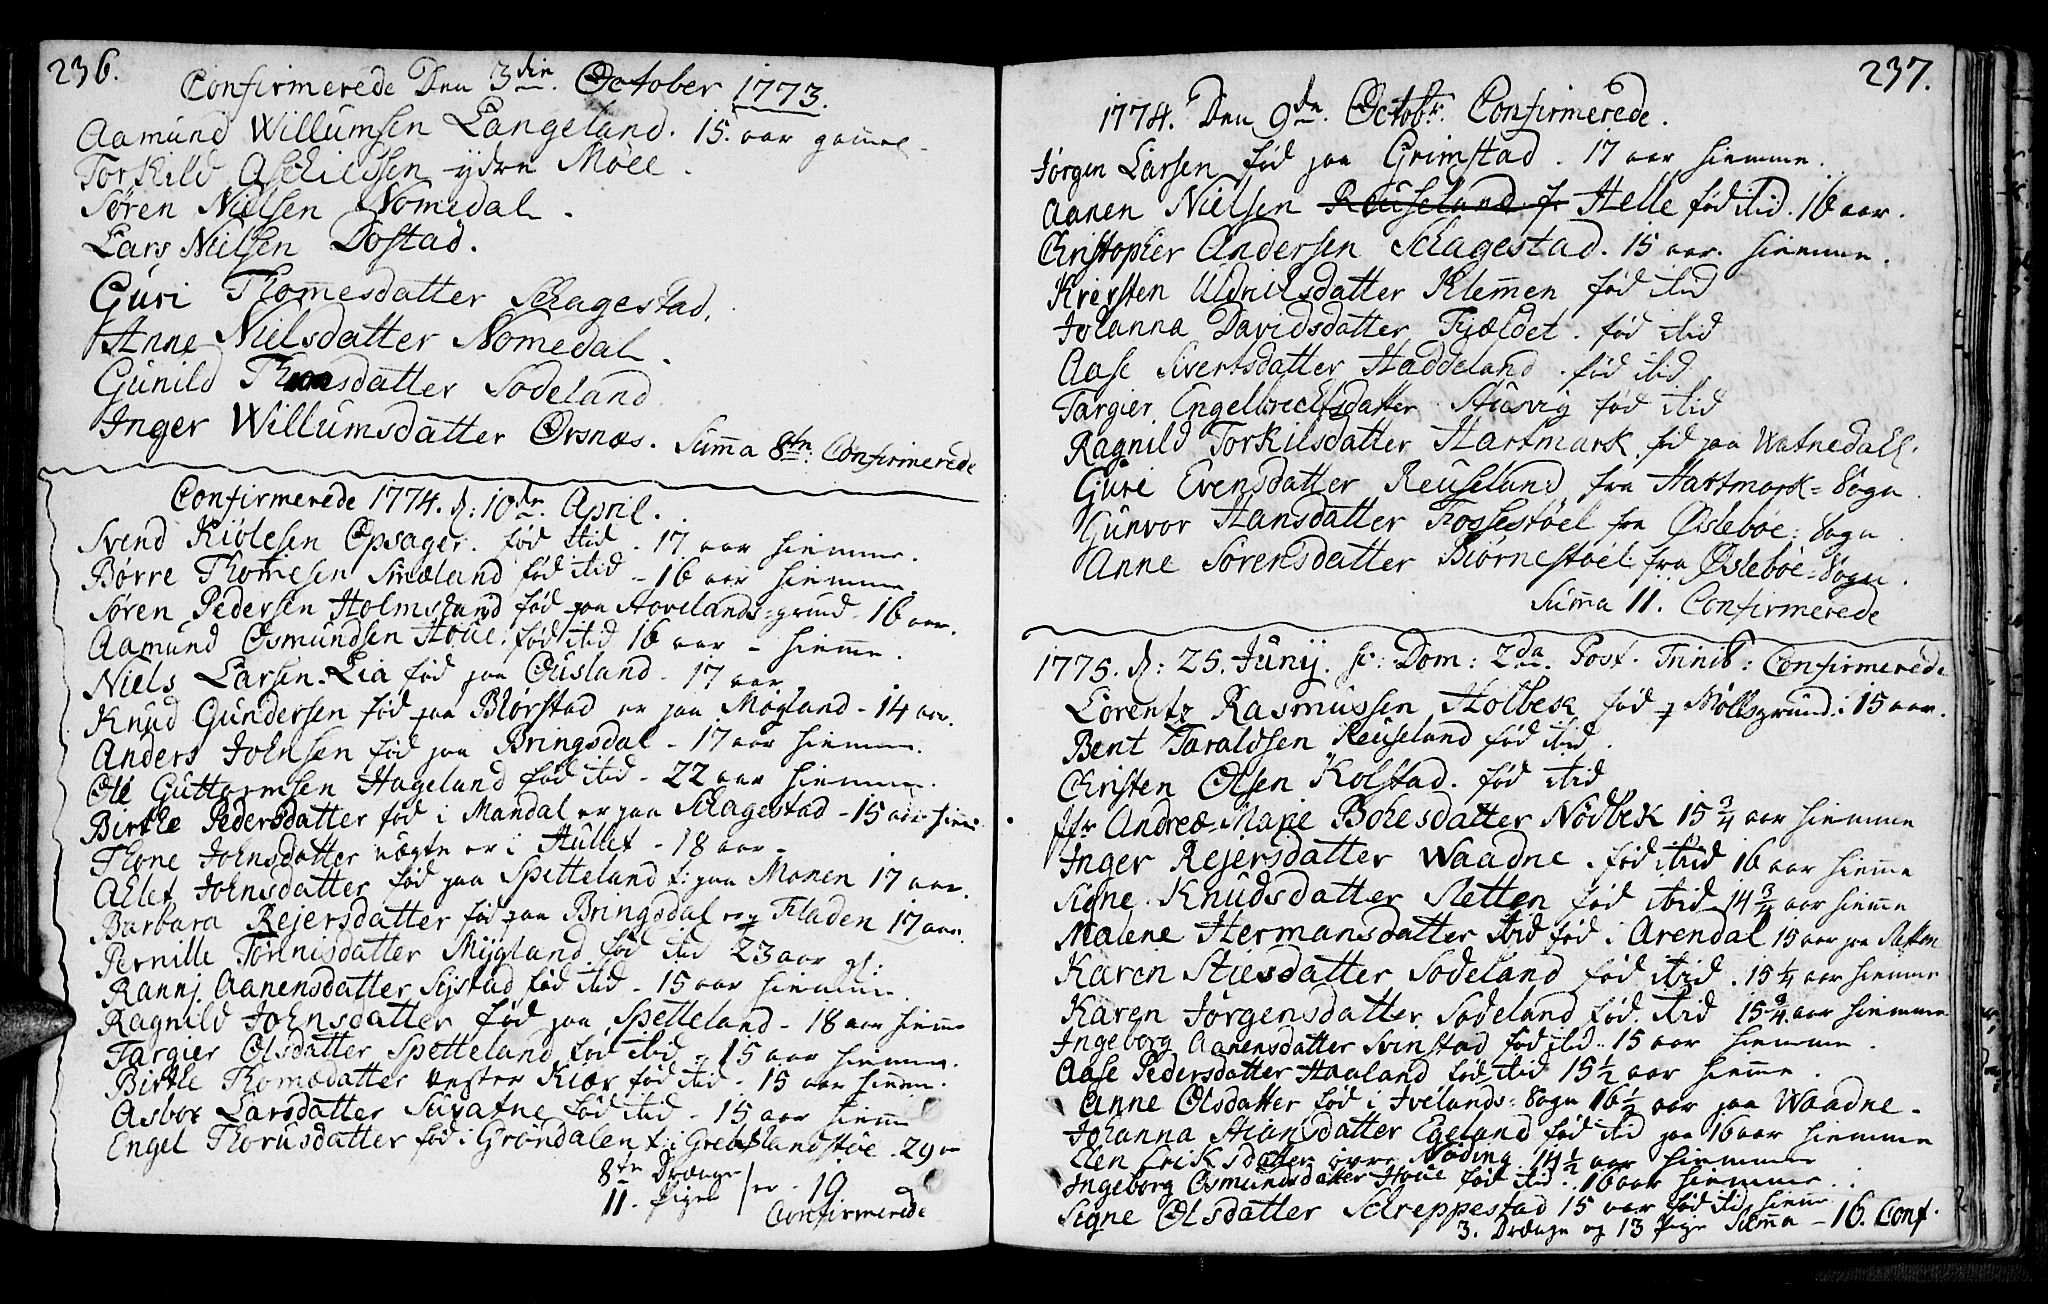 236.
Confirmerede Den 3die October 1773.
Aamund Willumsen Langeland. 15. aar gamel
Torkild Aschildsen ydre Möll.
Sören Nielsen Nomedal.
Lars Nielsen Dostad.
Guri Thomesdatter Schagestad.
Anne Nielsdatter Nomedal.
Gunild datter Sodeland
Inger Willumsdatter Örsnæs. Suma 8te Confirmerede
Confirmerede 1774. d: 10de April.
Svend Kiölesen Opsager. föd ibid - 17 aar hiemme.
Börre Thomesen Smeland föd ibid - 16 aar hiemme.
Sören Pedersen Holmsland föd paa Hovelands=grund - 16 aar.
Aamund Osmundsen Houe. föd ibid 16 aar - hieme.
Niels Larsen Lia föd paa Ousland - 17 aar
Knud Gundersen föd paa Blörstad er paa Mögland - 14 aar.
Anders Johnsen föd paa Bringsdal - 17 aar hiemme.
Ole Guttormsen Hageland föd ibid - 22 aar hiemme.
Birthe Pedersdatter föd i Mandal er paa Schagestad - 15 aar hiem
Thone Johnsdatter er i Hullet - 18 aar -
Aelet Johnsdatter föd paa Spetteland t: paa Monen 17 aar.
Barbara Rejersdatter föd paa Bringsdal Fladen 17 aar.
Pernille Tönnisdatter Mÿgland föd ibid 23 aar gl:
Rannj. Aanensdatter Sejstad föd ibid - 15 aar hiemme.
Ragnild Johnsdatter föd paa Spetteland - 18 aar hieme
Targier Olsdatter Spetteland föd ibid - 15 aar hiemme.
Birthe Thomædatter Vester Kiær föd ibid - 15 aar hiemm.
Asbor Larsdatter Suvatne föd ibid - 15 aar hieme
Engel Thorusdatter föd i Gröndalen t. i 29
8te Drænge
11. Piger er - 19
Confirmerede
237.
1774. Den 9de Octobr. Confirmerede.
Jörgen Larsen föd paa Grimstad. 17 aar hiemme.
Aanen Nielsen Reuseland f. Helle föd ibid. 16 aar.
Christopher Andersen Schagestad. 15 aar. hiemme.
Kiersten Udnilsdatter Klemen föd ibid
Johanna Davidsdatter Fjeldet. föd ibid
Aase Sivertsdatter Haddeland. föd ibid
Targier Engelbrechtsdatter Stusvig föd ibid
Ragnild Torkilsdatter Hartmark föd paa Watnedalt.
Guri Evensdatter Reuseland fra Hartmark=Sogn
Gunvor Hansdatter Fossestöel fra Öslebøe=Sogn
Anne Sörensdatter Biörnestöel fra Öslebøe=Sogn.
Suma 11. Confirmerede
1775. d: 25. Junij. Dom: 2da Post. Trinit: Confirmerede
Lorentz Rasmussen Holbek föd Möllsgrund: 15 aar.
Bent Taraldsen Reuseland föd ibid.
Christen Olsen Kolstad. föd ibid
Jfr Andreæ-Marie Bohesdatter Nödbek 15 3/4 aar hiemme
Inger Rejersdatter Waadne. föd ibid 16 aar hieme
Signe Knudsdatter Sletten föd ibid 14 3/4 aar hieme
Malene Hermansdatter ibid föd i Arendal 15 aar paa Sletten
Karen Stiesdatter Sodeland föd ibid. 15 1/4 aar hiemme
Karen Jörgensdatter Sodeland föd ibid 15 3/4 aar hiemme
Ingeborg Aanensdatter Svinstad föd ibid. 15 aar hiemme.
Aase Pedersdatter Haaland föd ibid 15 1/2 aar hieme.
Anne Olsdatter föd i Ivelands=Sogn 16 1/2 aar paa Waadne.
Johanna Stiansdatter Egeland föd ibid paa 16 aar hiemme
Elen Eriksdatter övre Nöding. 14 1/2 aar hiemme
Ingeborg Osmundsdatter Houe föd ibid. 16 aar hiemme.
Signe Olsdatter Schreppestad 15 aar föd ibid, hieme
3. Drænge og 13 Pige Suma - 16. Conf.